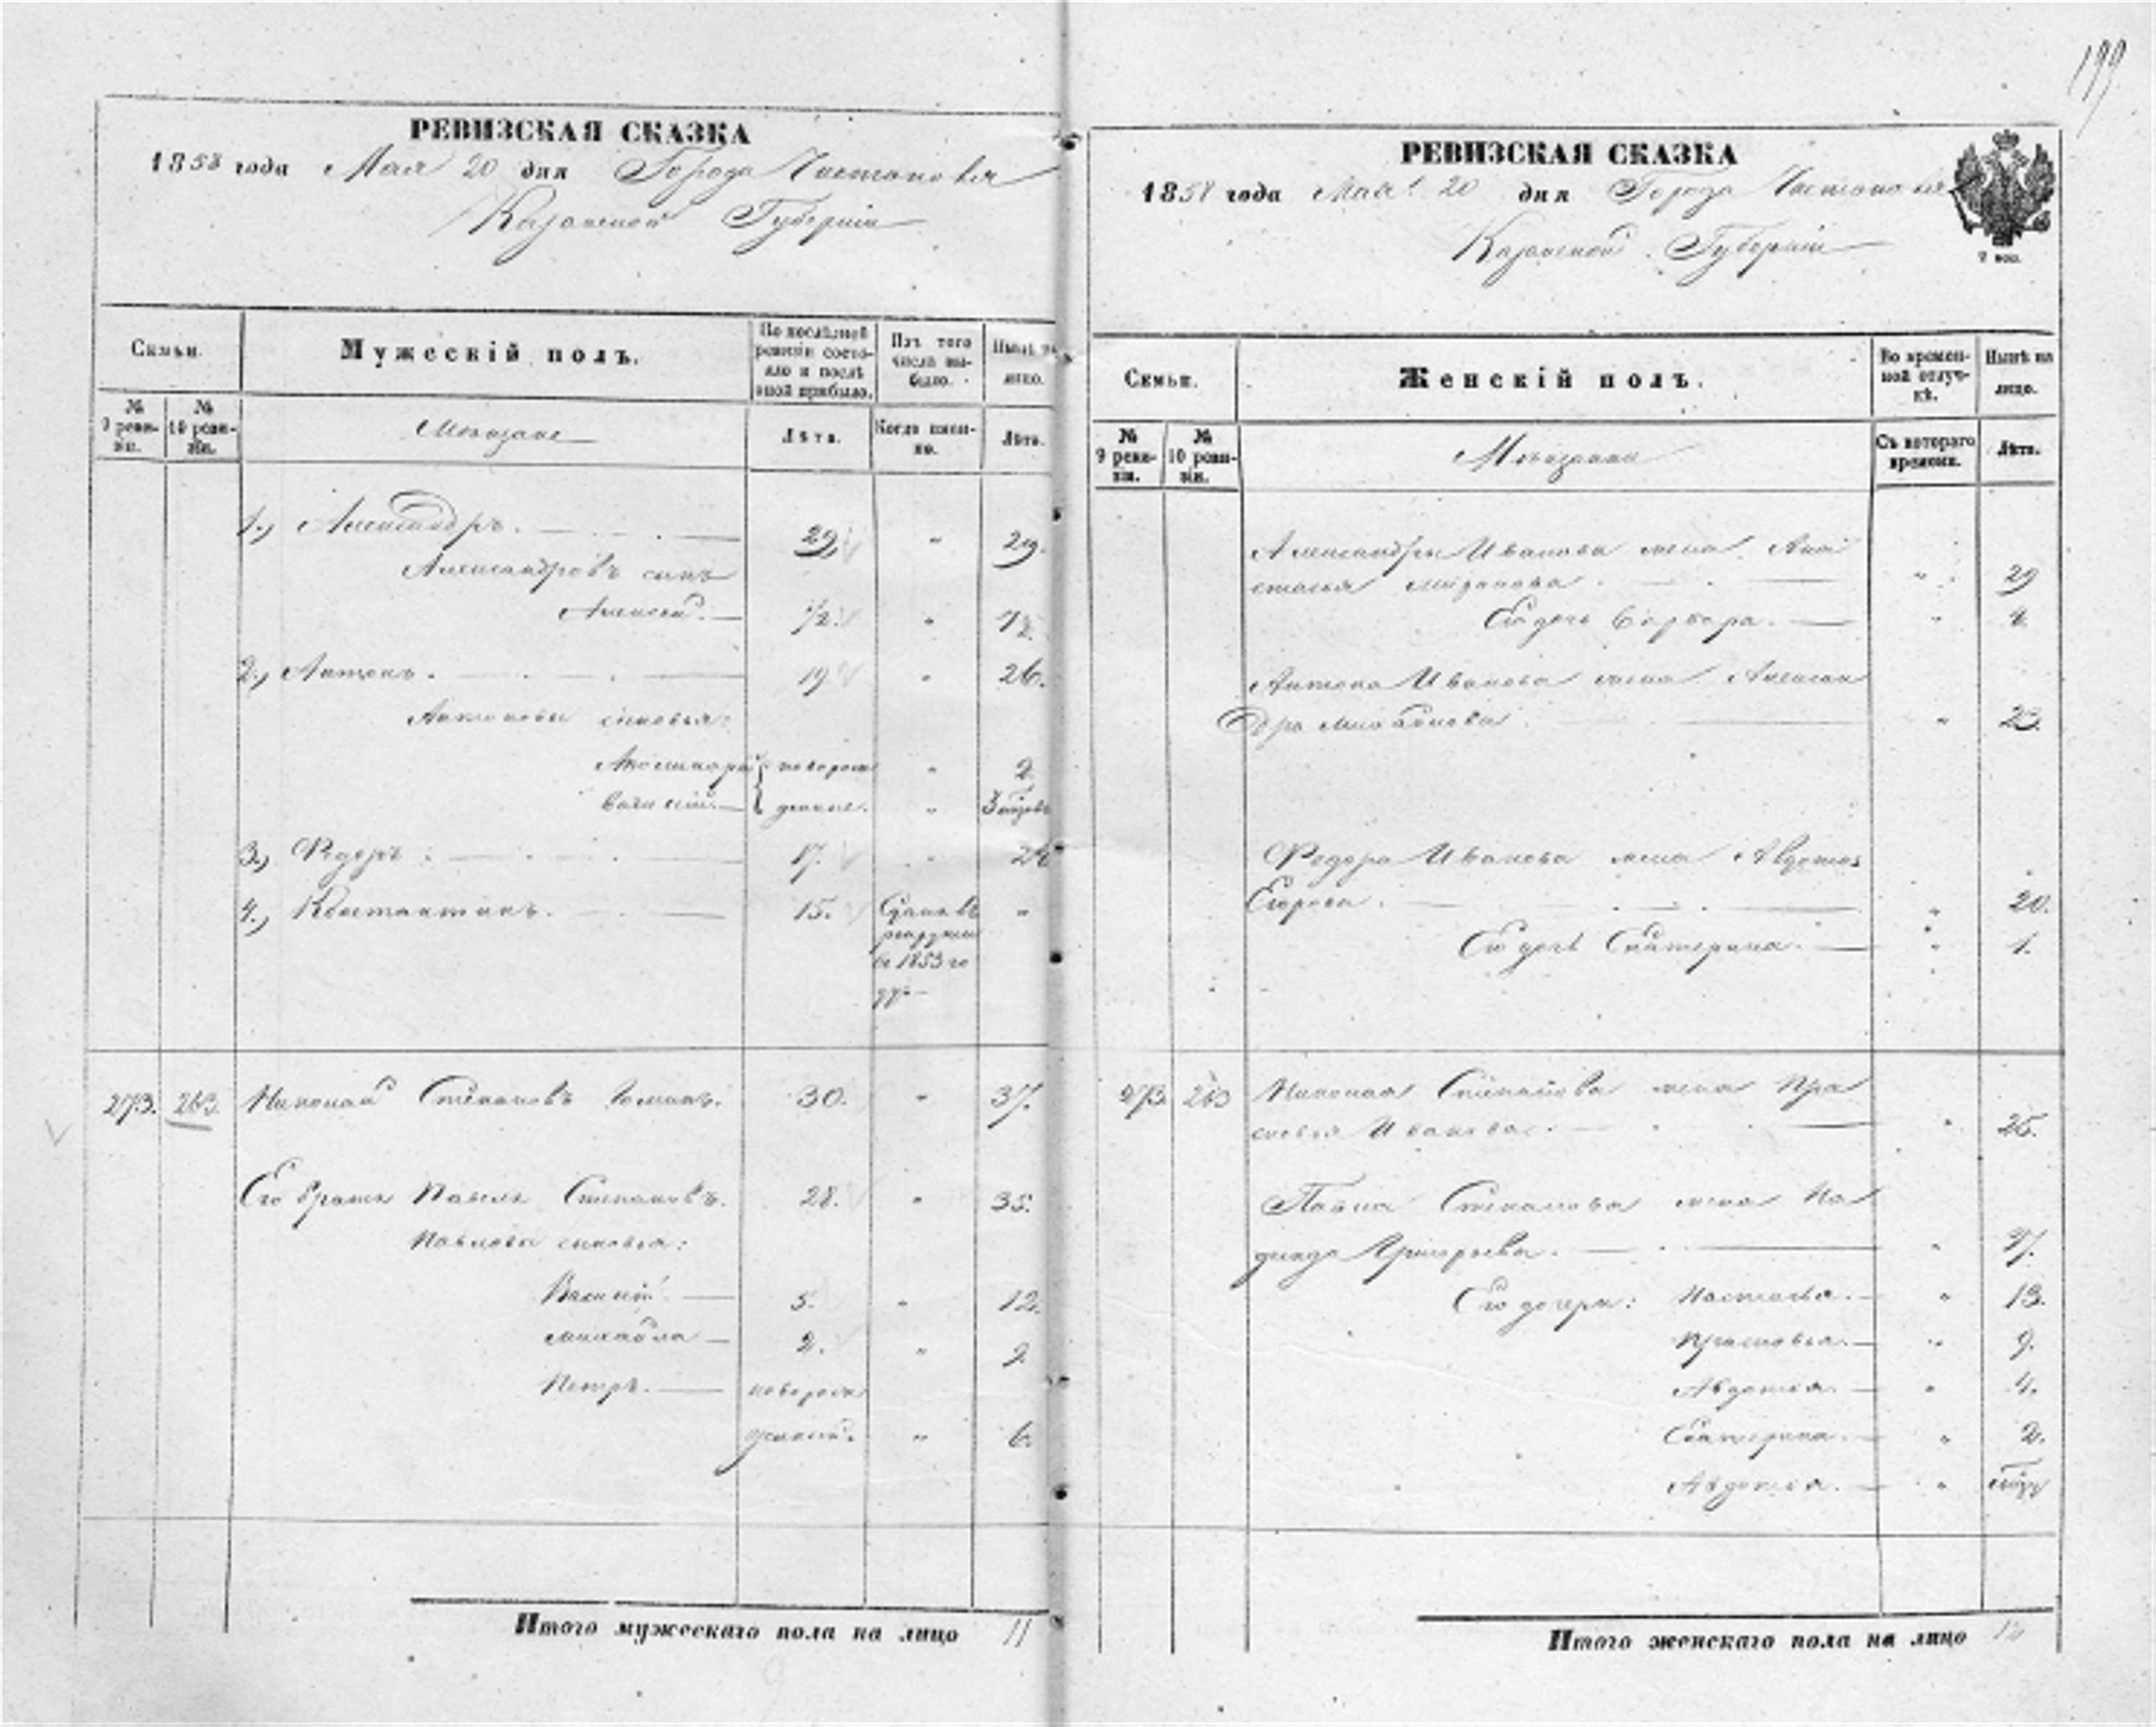 199
РЕВИЗСКАЯ СКАЗКА
1858 года Мая 20 дня Города Чистополя
Казанской Губернiи
Семьи.
Мужескiй полъ.
По послѣдней ревизiи состояло и послѣ оной прибыло.
Изъ того числа выбыло.
Нынѣ на лицо.
№ 9 ревизiи.
№ 10 ревизiи.
Мѣщане
Лѣта.
Когда именно.
Лѣта.
1.) Александръ. 29 " 29.
Александровъ сынъ
Алексѣй. 1/2. " 7 1/2.
2.) Антонъ. 19 " 26.
Антоновы сыновья:
новорож "  2
Василiй. денные. " 3
3.) Федоръ. 17. " 24
4.) Константинъ. 15. Сданъ въ "
рекруты
въ 1853 го
ду
273. 263. Николай Степановъ 30. " 37.
Его братъ Павелъ Степановъ. 28. " 35.
Павловы сыновья:
Василiй. 5. " 12.
Михайла 2. " 9
Петръ. новорож
денный. " 6.
Итого мужескаго пола на лицо 11
РЕВИЗСКАЯ СКАЗКА
1858 года Мая 20 дня Города Чистополя
Казанской Губернiи
2 коп.
Семьи.
Женскiй полъ.
Во временной отлучкѣ.
Нынѣ на лицо.
№ 9 ревизiи.
№ 10 ревизiи.
Мѣщане
Съ котораго времени.
Лѣта.
Александра Иванова жена Ана
стасья " 29
Его дочь Варвара. "
Антона Иванова жена Алексан
дра Михайлова " 23.
Федора Иванова жена Авдотья
Егорова. " 20.
Его дочь Екатерина. " 1.
273 263 Николая Степанова жена Пра
сковья Иванова. " 25.
Павла Степанова жена На
дежда Григорьева. "
Его дочери: Настасья. " 13.
Прасковья. " 9.
Авдотья. " 4.
Екатерина. " 2.
Авдотья. "
Итого женскаго пола на лицо